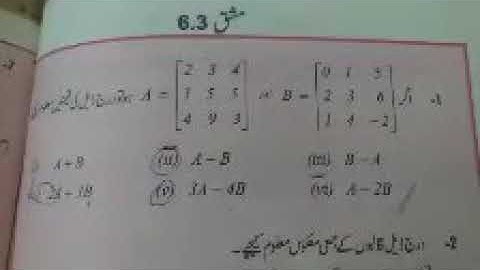 مشق 6.3
-1 اگر B = [0 1 5; 2 3 6; 1 4 -2] اور A = [2 3 4; 1 5 5; 4 9 3] ہو تو درج ذیل کی قیمتیں معلوم
(i) A+B (ii) A-B (iii) B-A
2A+3B (v) 3A-4B (vi) A-2B
-2 درج ذیل قالبوں کے جمعی معکوس معلوم کیجیے۔